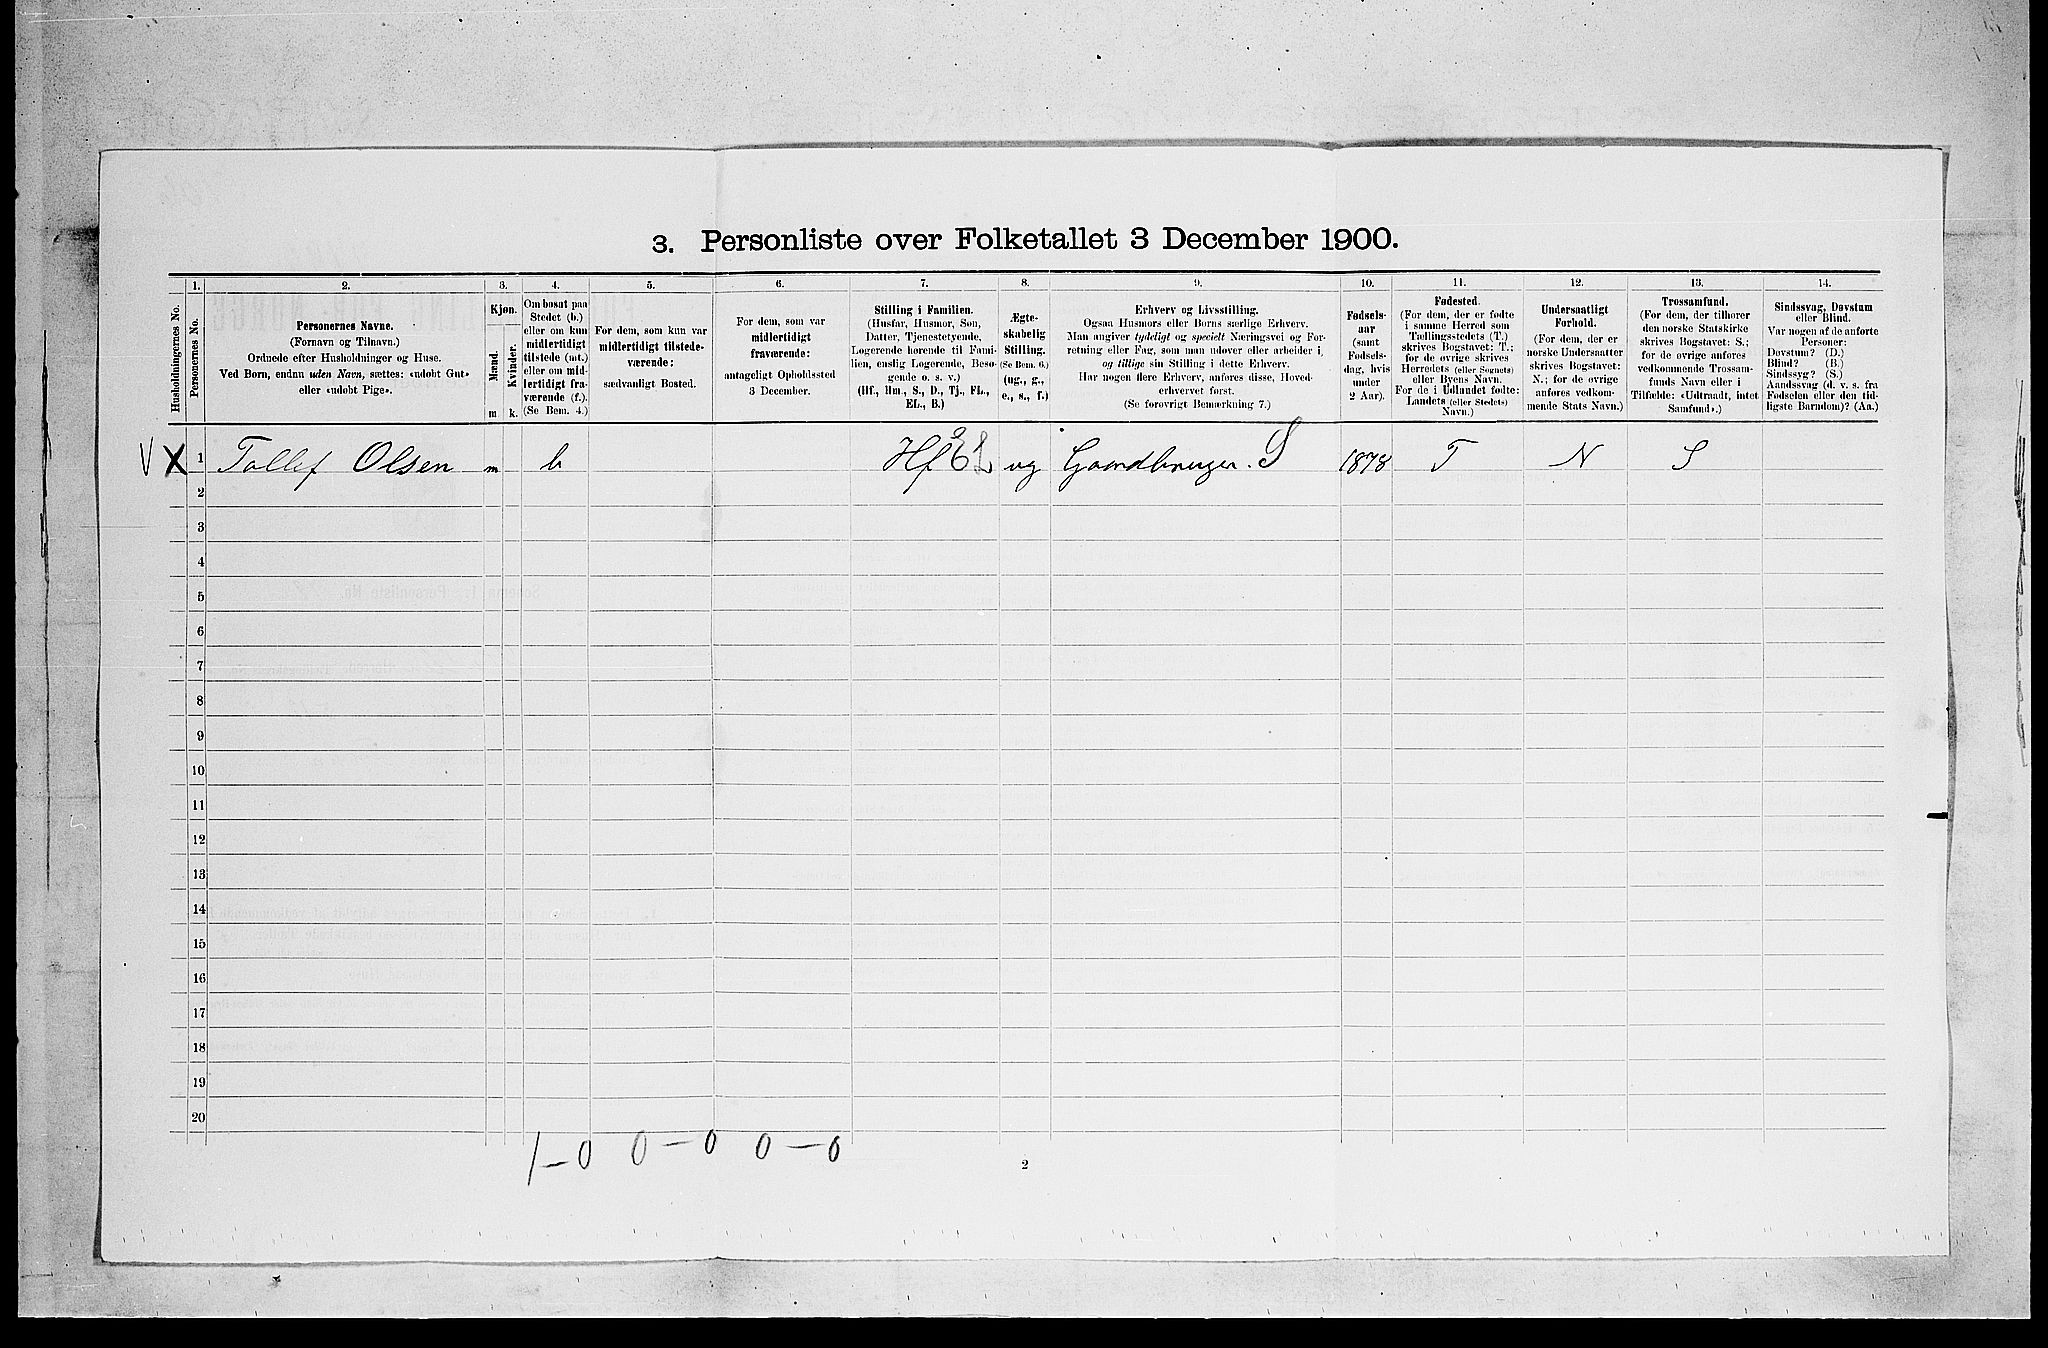 3. Personliste over Folketallet 3 December 1900.
Husholdningernes No.
1.
Personernes No.
2.
Personernes Navne.
(Fornavn og Tilnavn.)
Ordnede efter Husholdninger og Huse.
Ved Børn, endnu uden Navn, sættes: «udøbt Gut»
eller «udøbt Pige».
3.
Kjøn.
Mænd.
Kvinder.
m
k.
4.
Om bosat paa
Stedet (b.)
eller om kun
midlertidigt
tilstede (mt.)
eller om mid-
lertidigt fra-
værende (f.).
(Se Bem. 4.)
5.
For dem, som kun var
midlertidigt tilstede-
værende:
sædvanligt Bosted.
6.
For dem, som var
midlertidigt
fraværende:
antageligt Opholdssted
3 December.
7.
Stilling i Familien.
(Husfar, Husmor, Søn,
Datter, Tjenestetyende,
Logerende hørende til Fami-
lien, enslig Logerende, Besø-
gende o. s. v.)
(Hf., Hm., S., D., Tj., FL.,
EL., B.)
8.
Ægte-
skabelig
Stilling.
(Se Bem. 6.)
(ug., g.,
e., s., f.)
9.
Erhverv og Livsstilling.
Ogsaa Husmors eller Børns særlige Erhverv.
Man angiver tydeligt og specielt Næringsvei og For-
retning eller Fag, som man udøver eller arbeider i,
og tillige sin Stilling i dette Erhverv.
Har nogen flere Erhverv, anføres disse, Hoved-
erhvervet først.
(Se forøvrigt Bemærkning 7.)
10.
Fødsels-
aar
(samt
Fødsels-
dag, hvis
under
2 Aar).
11.
Fødested.
(For dem, der er fødte
i samme Herred som
Tællingsstedets (T.)
skrives Bogstavet: T.;
for de øvrige skrives
Herredets (eller Sognets)
eller Byens Navn.
For de i Udlandet fødte:
Landets (eller Stedets)
Navn.)
12.
Undersaatligt
Forhold.
(For dem, der er
norske Undersaatter
skrives Bogstavet:
N.; for de øvrige
anføres vedkom-
mende Stats Navn.)
13.
Trossamfund.
(For dem, der tilhører
den norske Statskirke
skrives Bogstavet: S.;
for de øvrige anføres
vedkommende Trossam-
funds Navn eller i
Tilfælde: «Udtraadt, intet
Samfund».)
14.
Sindssvag, Døvstum
eller Blind.
Var nogen af de anførte
Personer:
Døvstum? (D.)
Blind? (B.)
Sindssyg? (S.)
Aandssvag (d. v. s. fra
Fødselen eller den tid-
ligste Barndom)? (Aa.)
V X 1 Tollef Olsen m b Hf EL ug Gaardbruger. S 1878 T N S
2
3
4
5
6
7
8
9
10
11
12
13
14
15
16
17
18
19
20
1-0 0-0 0-0
2